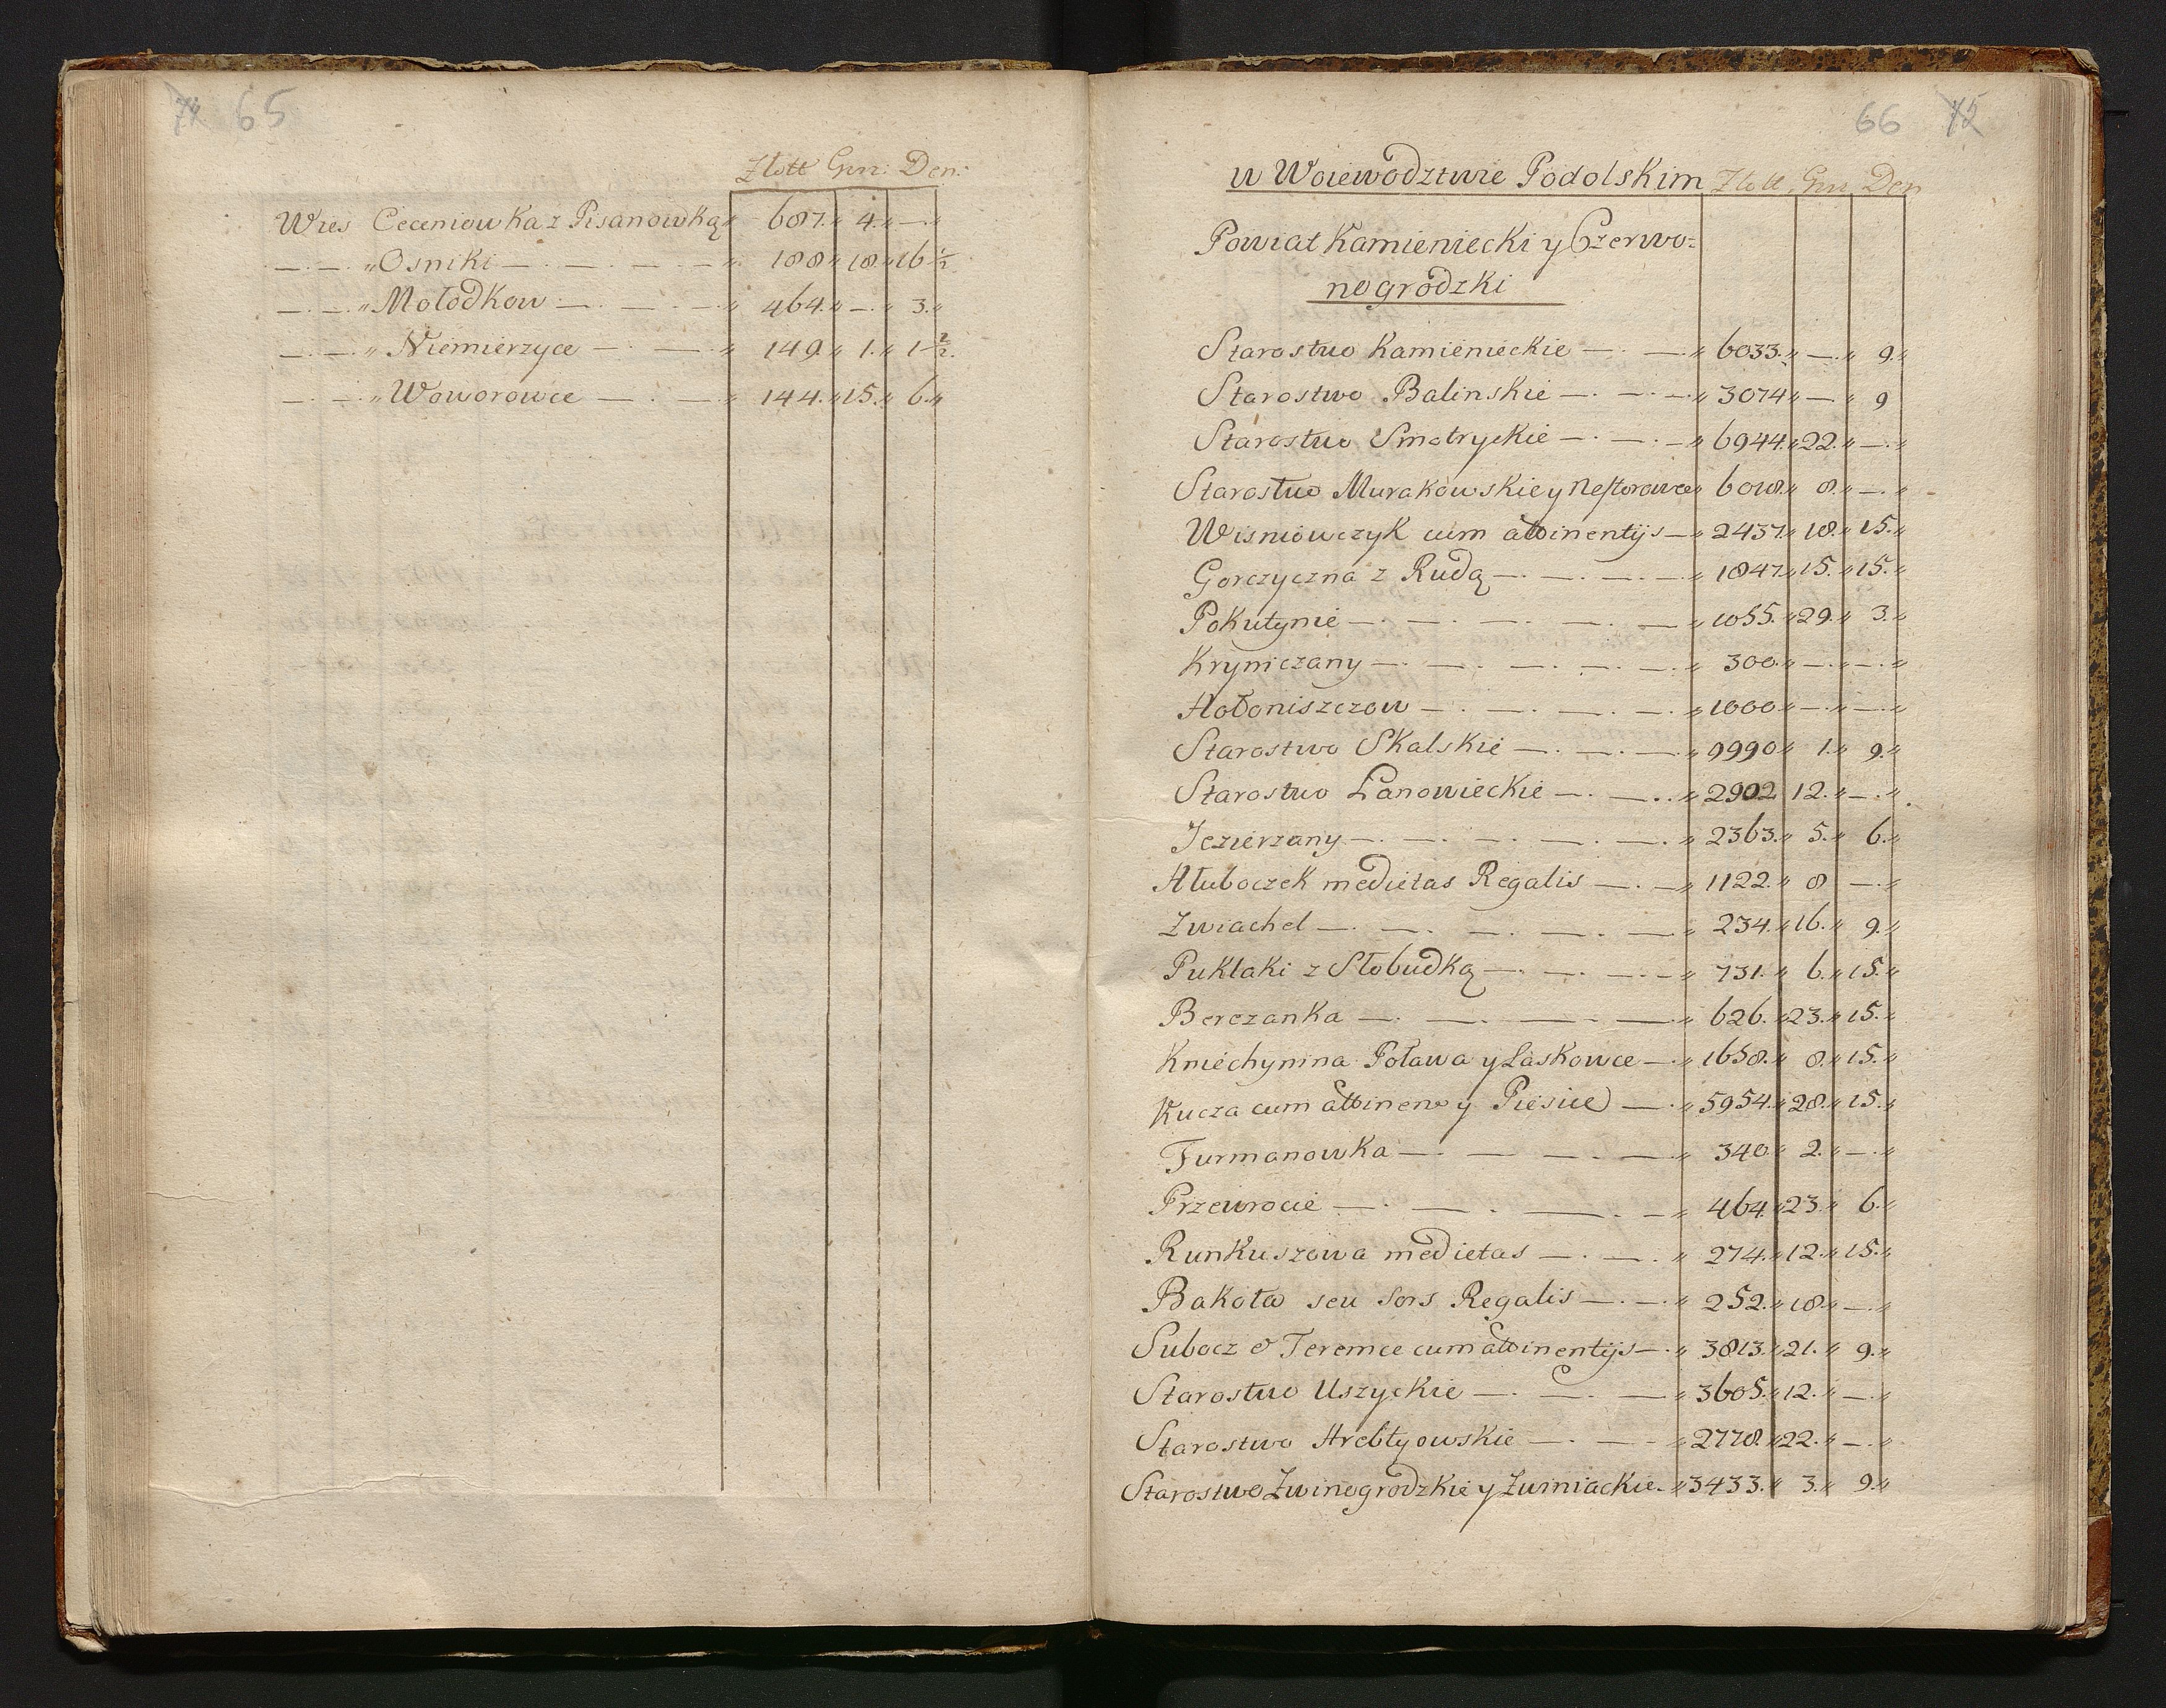 74 65
Złott Grn: Den:
Wies Ceceniowka z Pisanowką „ 687. „ 4. „ — „
— . — „ Osniki — . — . — . — „ 188 „ 18 „ 16 ½
— . — . „ Mołodkow — . — . — „ 464. „ — . „ 3. „
— . — . „ Niemierzyce — . — . „ 149. „ 1. „ 1 ½.
— . — . „ Woworowce — . — . „ 144. „ 15. „ 6. „
66 75
w Woiewodztwie Podolskim Złott Grn Den
Powiat Kamieniecki y Czerwo=
nogrodzki
Starostwo Kamienieckie — . — „ 6033. „ — . „ 9. „
Starostwo Balinskie — . — . — „ 3074 „ — „ 9
Starostwo Smotryckie — . — . — „ 6944. „ 22. „ — . „
Starostwo Murakowskie y Nestorowce „ 6018. „ 8. „ — . „
Wisniowczyk cum attinentijs — „ 2437. „ 18. „ 15. „
Gorczyczna z Rudą — . — . — . — „ 1847. „ 15. „ 15. „
Pokutynie — . — . — . — . — „ 1055. „ 29. „ 3. „
Kryniczany — . — . — . — . — „ 300. „ — . „ — . „
Hołoniszczow — . — . — . — . „ 1000 „ — . „ — . „
Starostwo Skalskie — . — . — „ 9990 „ 1. „ 9. „
Starostwo Łanowieckie — . — . . „ 2902 12. „ — . „
Jezierzany — . — . — . — . — . „ 2363. „ 5. „ 6. „
Hłuboczek medietas Regalis — . — „ 1122. „ 8 — . „
Zwiachel — . — . — . — . — „ 234. „ 16. „ 9. „
Puklaki z Słobudką — . — . — . — „ 731. „ 6. „ 15. „
Berezanka — . — . — . — „ 626. „ 23. „ 15. „
Kniechynina Poława y Laskowce — . „ 1658. „ 8. „ 15. „
Kucza cum attinen: y Piesiec — . „ 5954. „ 28. „ 15. „
Furmanowka — . — . — . — „ 340 „ 2. „ — . „
Przewrocie — . — . — . — „ 464. „ 23. „ 6. „
Runkuszowa medietas — . — . „ 274. „ 12. „ 15. „
Bakota seu Sors Regalis — . — . „ 252. „ 18. „ — . „
Subocz & Teremce cum attinentijs — . „ 3813. „ 21. „ 9. „
Starostwo Uszyckie — . — . — „ 3605. „ 12. „ — . „
Starostwo Hrebtyowskie — . — - „ 2778. „ 22. „ — . „
Starostwo Zwinogrodzkie y Zwiniackie. „ 3433. „ 3. „ 9. „